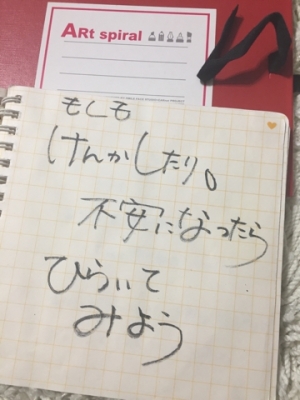 ARt spiral
もしも
けんかしたり。
不安になったら
ひらいて
みよう